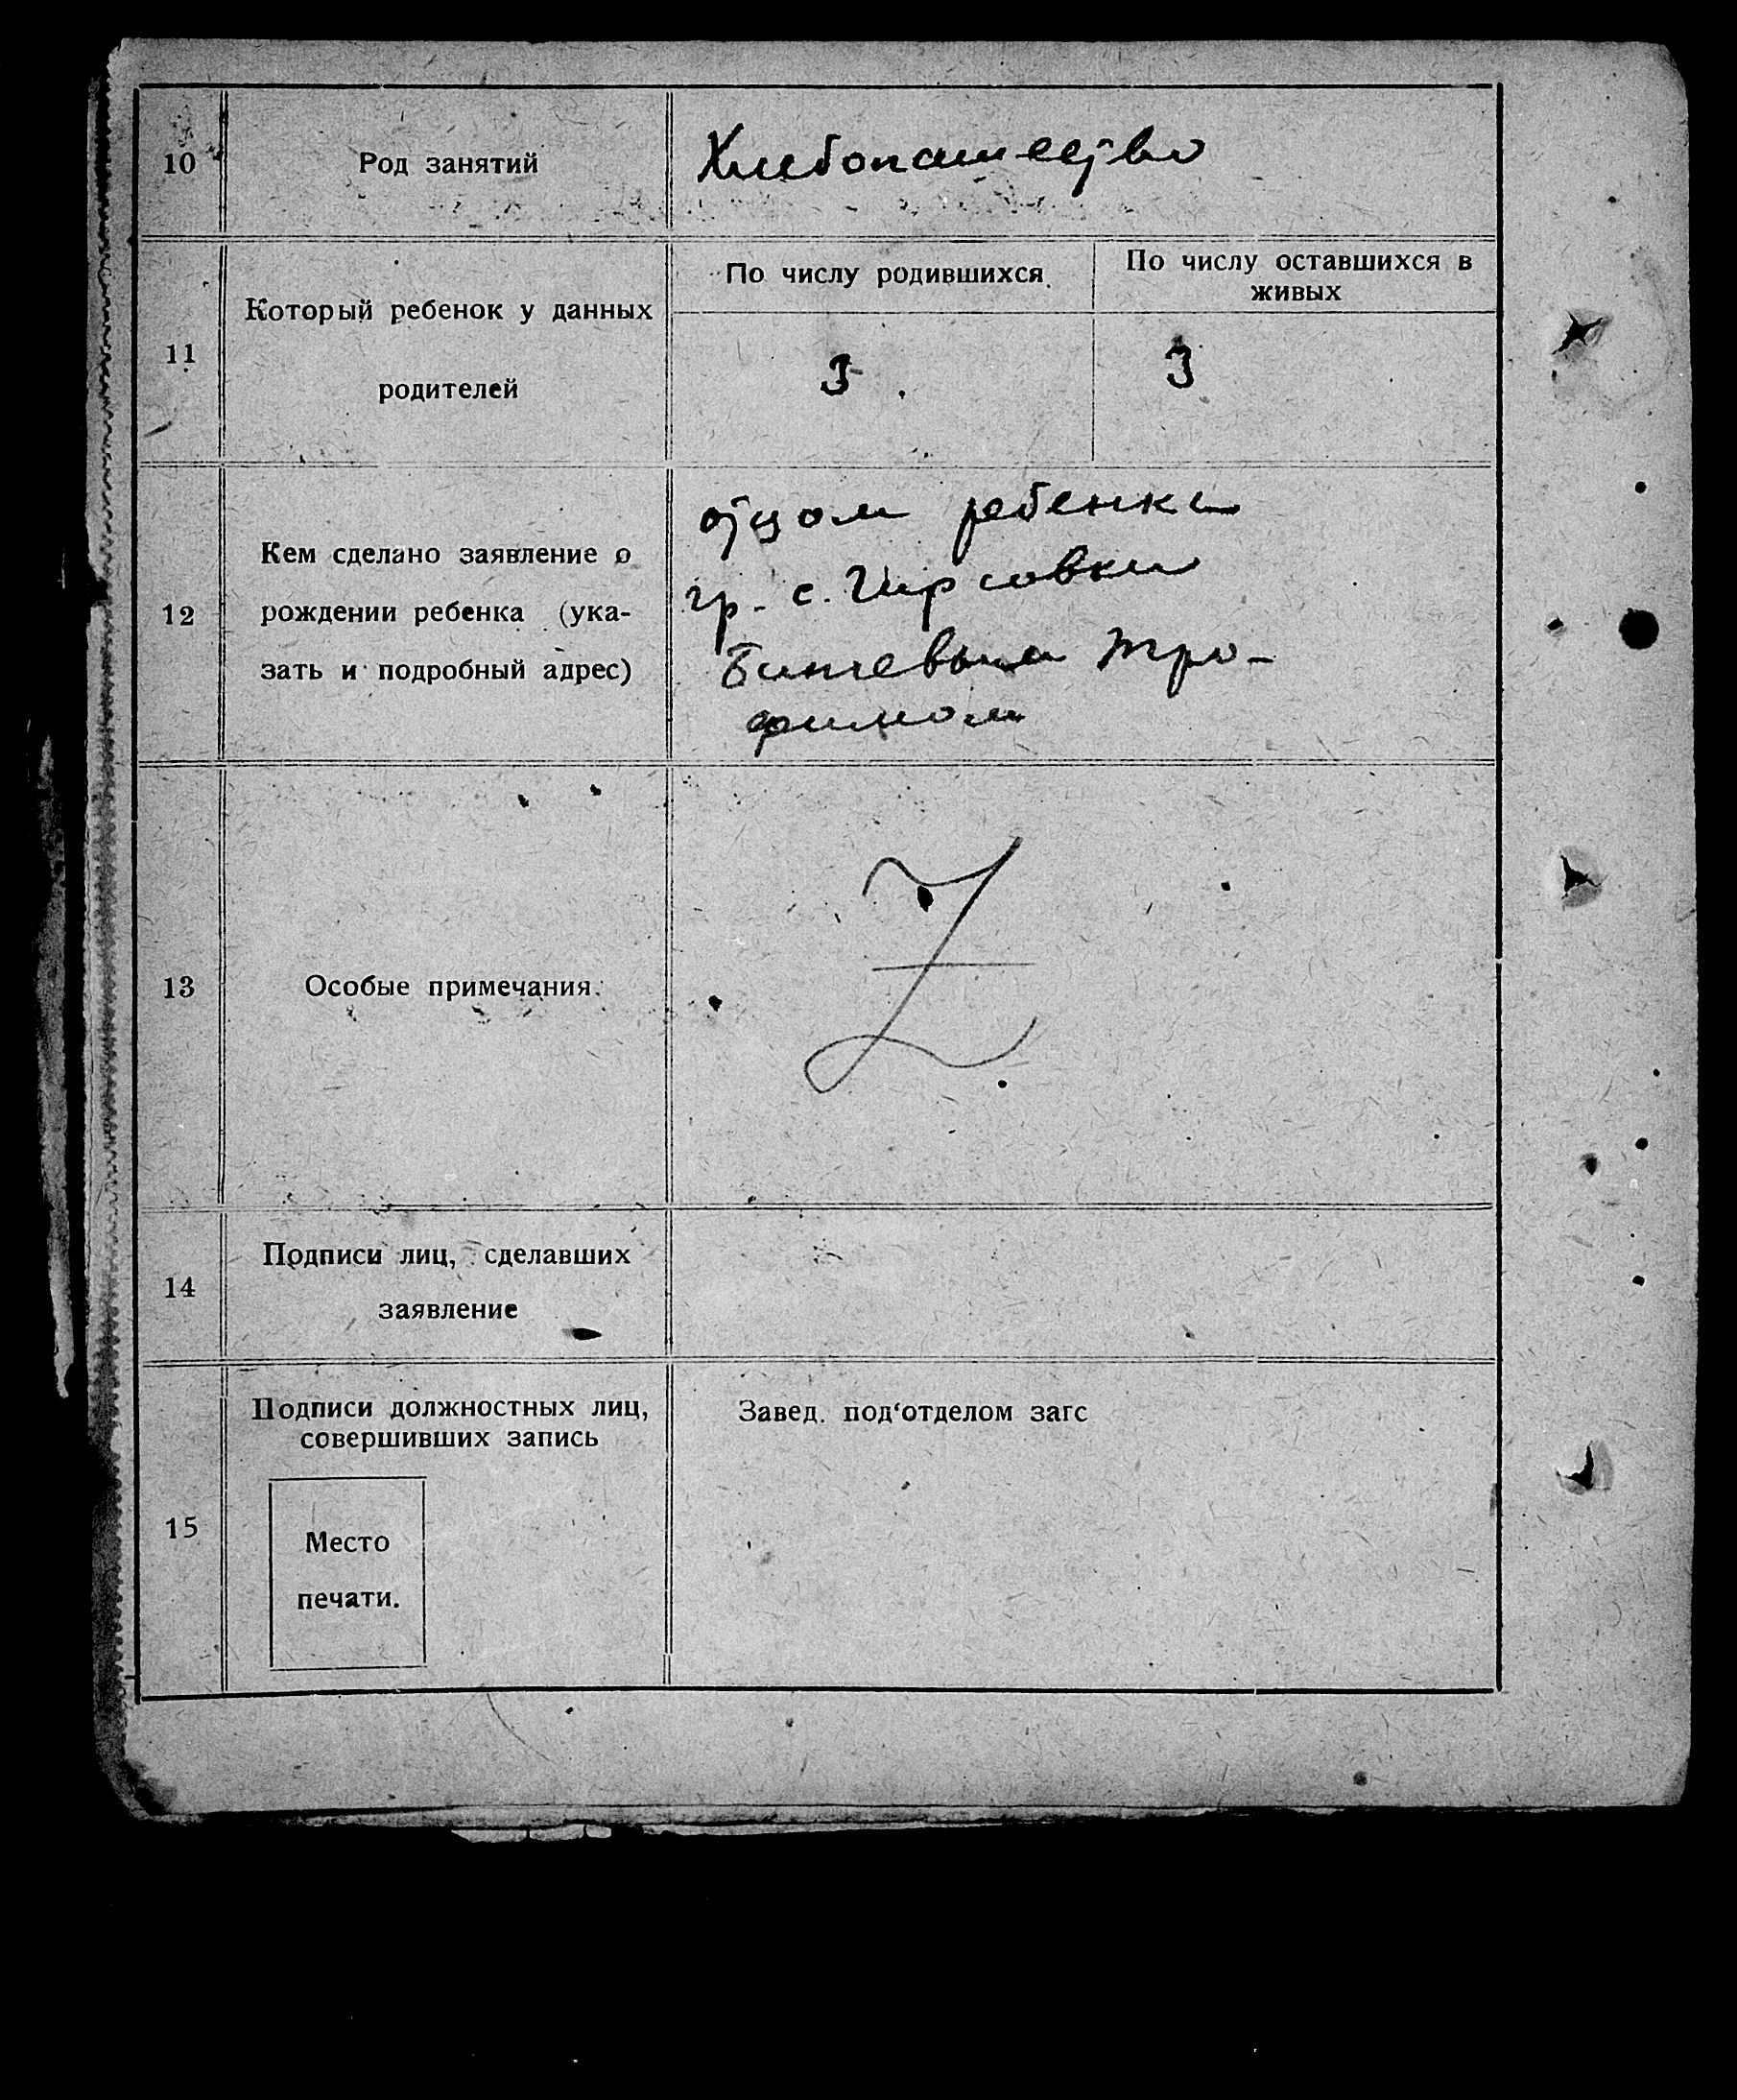 10
Род занятий
Хлебопашество
11
Который ребенок у данных
родителей
По числу родившихся.
По числу оставшихся в
живых
3
3
12
Кем сделано заявление о
рождении ребенка (ука-
зать и подробный адрес)
отцом ребенка
гр. с. Гирсовки
Тро-
фимом
13
Особые примечания.
Z
14
Подписи лиц, сделавших
заявление
15
Подписи должностных лиц,
совершивших запись
Место
печати.
Завед. под‘отделом загс